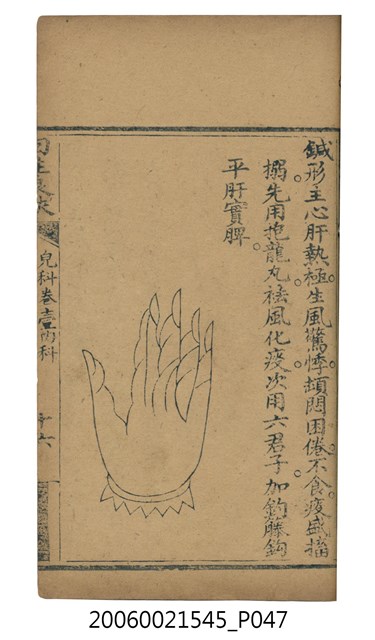 鍼形主心肝熱極生風驚悸頓悶困倦不食痰盛搐
搦先用抱龍丸祛風化痰次用六君子加鈎藤鈎
平肝實脾
兒科卷壹內科
十六
20060021545_P047